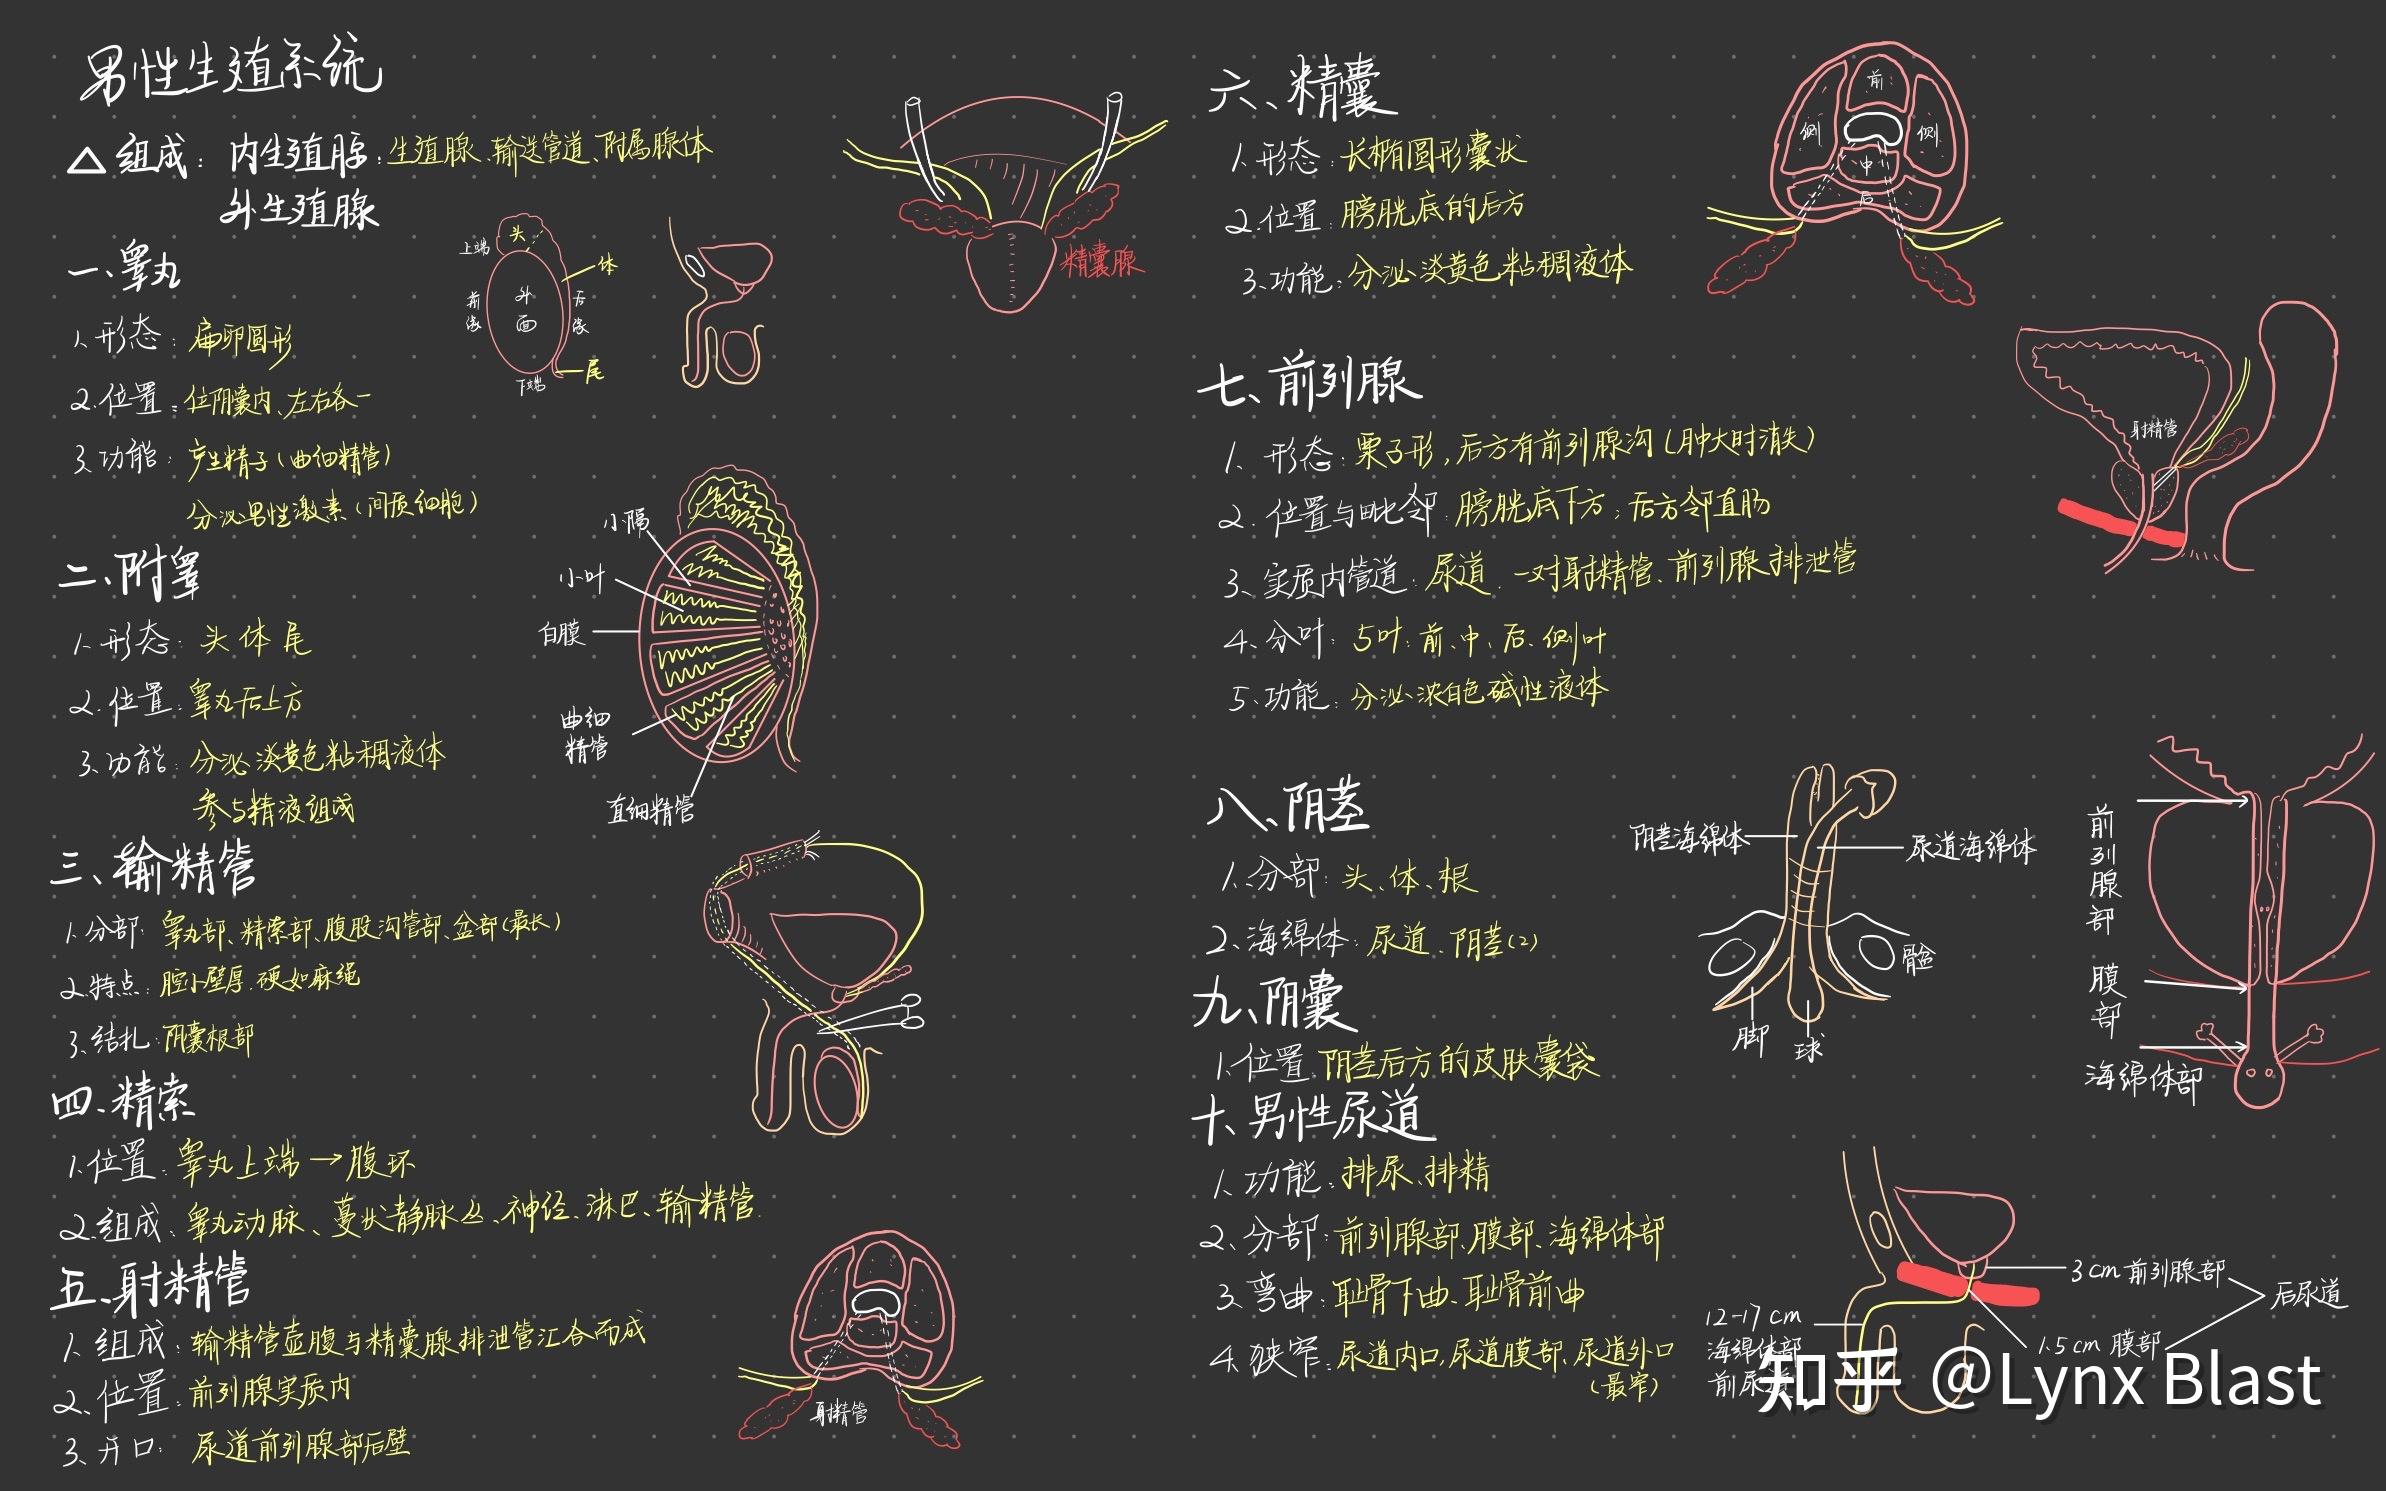 男性生殖系统
△组成：内生殖腺：生殖腺、输送管道、附属腺体
外生殖腺
一、睾丸
1.形态：扁卵圆形
2.位置：位阴囊内、左右各一
3.功能：产生精子（曲细精管）
分泌男性激素（间质细胞）
上端
头
体
前缘
外面
后缘
下端
尾
二、附睾
1.形态：头 体 尾
2.位置：睾丸后上方
3.功能：分泌淡黄色粘稠液体
参与精液组成
小隔
小叶
白膜
曲细
精管
直细精管
三、输精管
1.分部：睾丸部、精索部、腹股沟管部、盆部（最长）
2.特点：腔小壁厚、硬如麻绳
3.结扎：阴囊根部
四、精索
1.位置：睾丸上端→腹环
2.组成：睾丸动脉、蔓状静脉丛、神经、淋巴、输精管
五、射精管
1.组成：输精管壶腹与精囊腺排泄管汇合而成
2、位置：前列腺实质内
3.开口：尿道前列腺部后壁
射精管
精囊腺
六、精囊
1.形态：长椭圆形囊状
2.位置：膀胱底的后方
3.功能：分泌淡黄色粘稠液体
前
侧
侧
中
后
七、前列腺
1、形态：栗子形，后方有前列腺沟（肿大时消失）
2.位置与毗邻：膀胱底下方；后方邻直肠
3、实质内管道：尿道、一对射精管、前列腺排泄管
4.分叶：5叶：前、中、后、侧叶
5、功能：分泌浓白色碱性液体
射精管
八、阴茎
1.分部：头、体、根
2、海绵体：尿道、阴茎(2)
阴茎海绵体
尿道海绵体
脚
球
九、阴囊
1.位置：阴茎后方的皮肤囊袋
十、男性尿道
1、功能：排尿、排精
2、分部：前列腺部、膜部、海绵体部
3、弯曲：耻骨下曲、耻骨前曲
4、狭窄：尿道内口，尿道膜部、尿道外口
（最窄）
前列腺部
膜部
海绵体部
3cm 前列腺部
后尿道
1.5cm 膜部
12-17cm
海绵体部
前尿道
知乎 @Lynx Blast